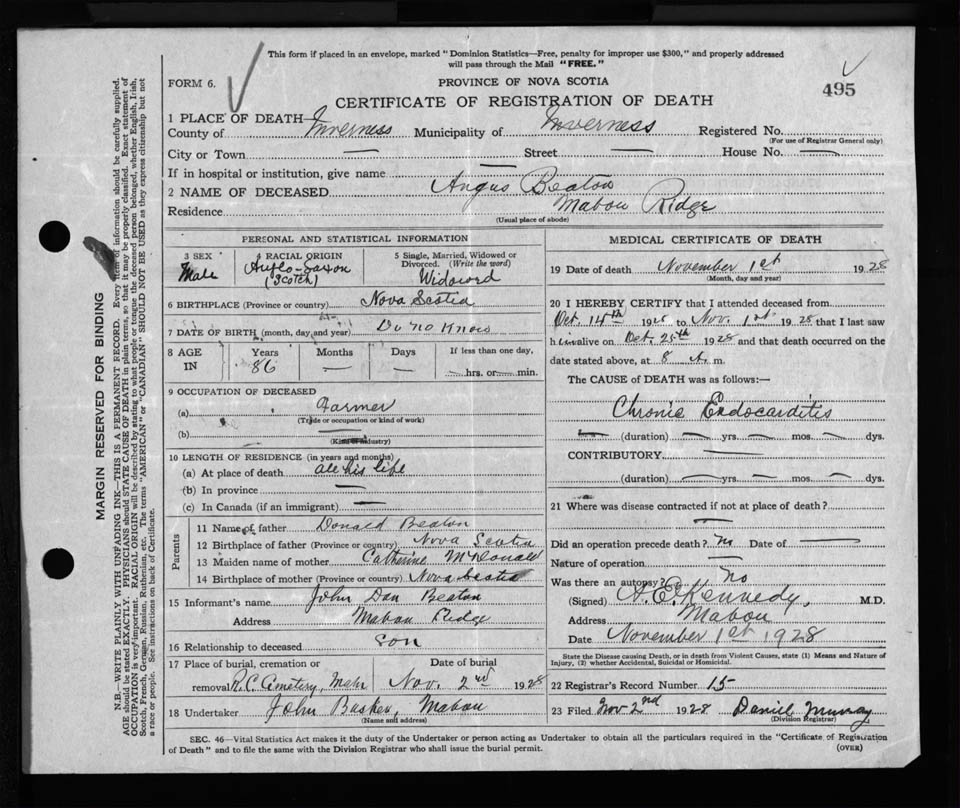 This form if placed in an envelope, marked "Dominion Statistics—Free, penalty for improper use $300," and properly addressed
will pass through the Mail "FREE."
FORM 6.
PROVINCE OF NOVA SCOTIA
495
CERTIFICATE OF REGISTRATION OF DEATH
1 PLACE OF DEATH—
County of Inverness Municipality of Inverness Registered No.
(For use of Registrar General only)
City or Town — Street — House No. —
If in hospital or institution, give name —
2 NAME OF DECEASED Angus Beaton
Residence Mabou Ridge
(Usual place of abode)
PERSONAL AND STATISTICAL INFORMATION
3 SEX Male
4 RACIAL ORIGIN Anglo-Saxon (Scotch)
5 Single, Married, Widowed or Divorced. (Write the word) Widowed
6 BIRTHPLACE (Province or country) Nova Scotia
7 DATE OF BIRTH (month, day, and year) Do no Know
8 AGE IN Years 86 Months — Days — If less than one day, — hrs. or — min.
9 OCCUPATION OF DECEASED
(a) Farmer
(Trade or occupation or kind of work)
(b) —
(Kind of industry)
10 LENGTH OF RESIDENCE (in years and months)
(a) At place of death all his life
(b) In province —
(c) In Canada (if an immigrant) —
Parents
11 Name of father Donald Beaton
12 Birthplace of father (Province or country) Nova Scotia
13 Maiden name of mother Catherine McDonald
14 Birthplace of mother (Province or country) Nova Scotia
15 Informant's name John Dan Beaton
Address Mabou Ridge
16 Relationship to deceased son
17 Place of burial, cremation or Date of burial
removal R.C. Cemetery, Nov. 2nd 1928
18 Undertaker John Mabou
(Name and address)
MEDICAL CERTIFICATE OF DEATH
19 Date of death November 1st 1928
(Month, day and year)
20 I HEREBY CERTIFY that I attended deceased from
Oct. 14th 1928 to Nov. 1st 1928 that I last saw
him alive on Oct. 25th 1928 and that death occurred on the
date stated above, at 8 A. m.
The CAUSE of DEATH was as follows:—
Chronic Endocarditis
— (duration) — yrs. — mos. — dys.
CONTRIBUTORY —
(duration) — yrs. — mos. — dys.
21 Where was disease contracted if not at place of death?
—
Did an operation precede death? no Date of —
Nature of operation —
Was there an autopsy? no
(Signed) A.E. Kennedy, M.D.
Address Mabou
Date November 1st 1928
State the Disease causing Death, or in death from Violent Causes, state (1) Means and Nature of
Injury, (2) whether Accidental, Suicidal or Homicidal.
22 Registrar's Record Number 15
23 Filed Nov 2nd 1928 Daniel Murray
(Division Registrar)
SEC. 46—Vital Statistics Act makes it the duty of the Undertaker or person acting as Undertaker to obtain all the particulars required in the "Certificate of Registration
of Death" and to file the same with the Division Registrar who shall issue the burial permit.
(OVER)
MARGIN RESERVED FOR BINDING
N.B.—WRITE PLAINLY WITH UNFADING INK—THIS IS A PERMANENT RECORD. Every item of information should be carefully supplied.
AGE should be stated EXACTLY. PHYSICIANS should STATE CAUSE OF DEATH in plain terms, so that it may be properly classified. Exact statement of
OCCUPATION is very important. RACIAL ORIGIN will be described by stating to what people or tongue the deceased person belonged, whether English, Irish,
Scotch, French, German, Russian, Ruthenian, etc. The terms "AMERICAN" or "CANADIAN" SHOULD NOT BE USED as they express citizenship but not
a race or people. See instructions on back of Certificate.